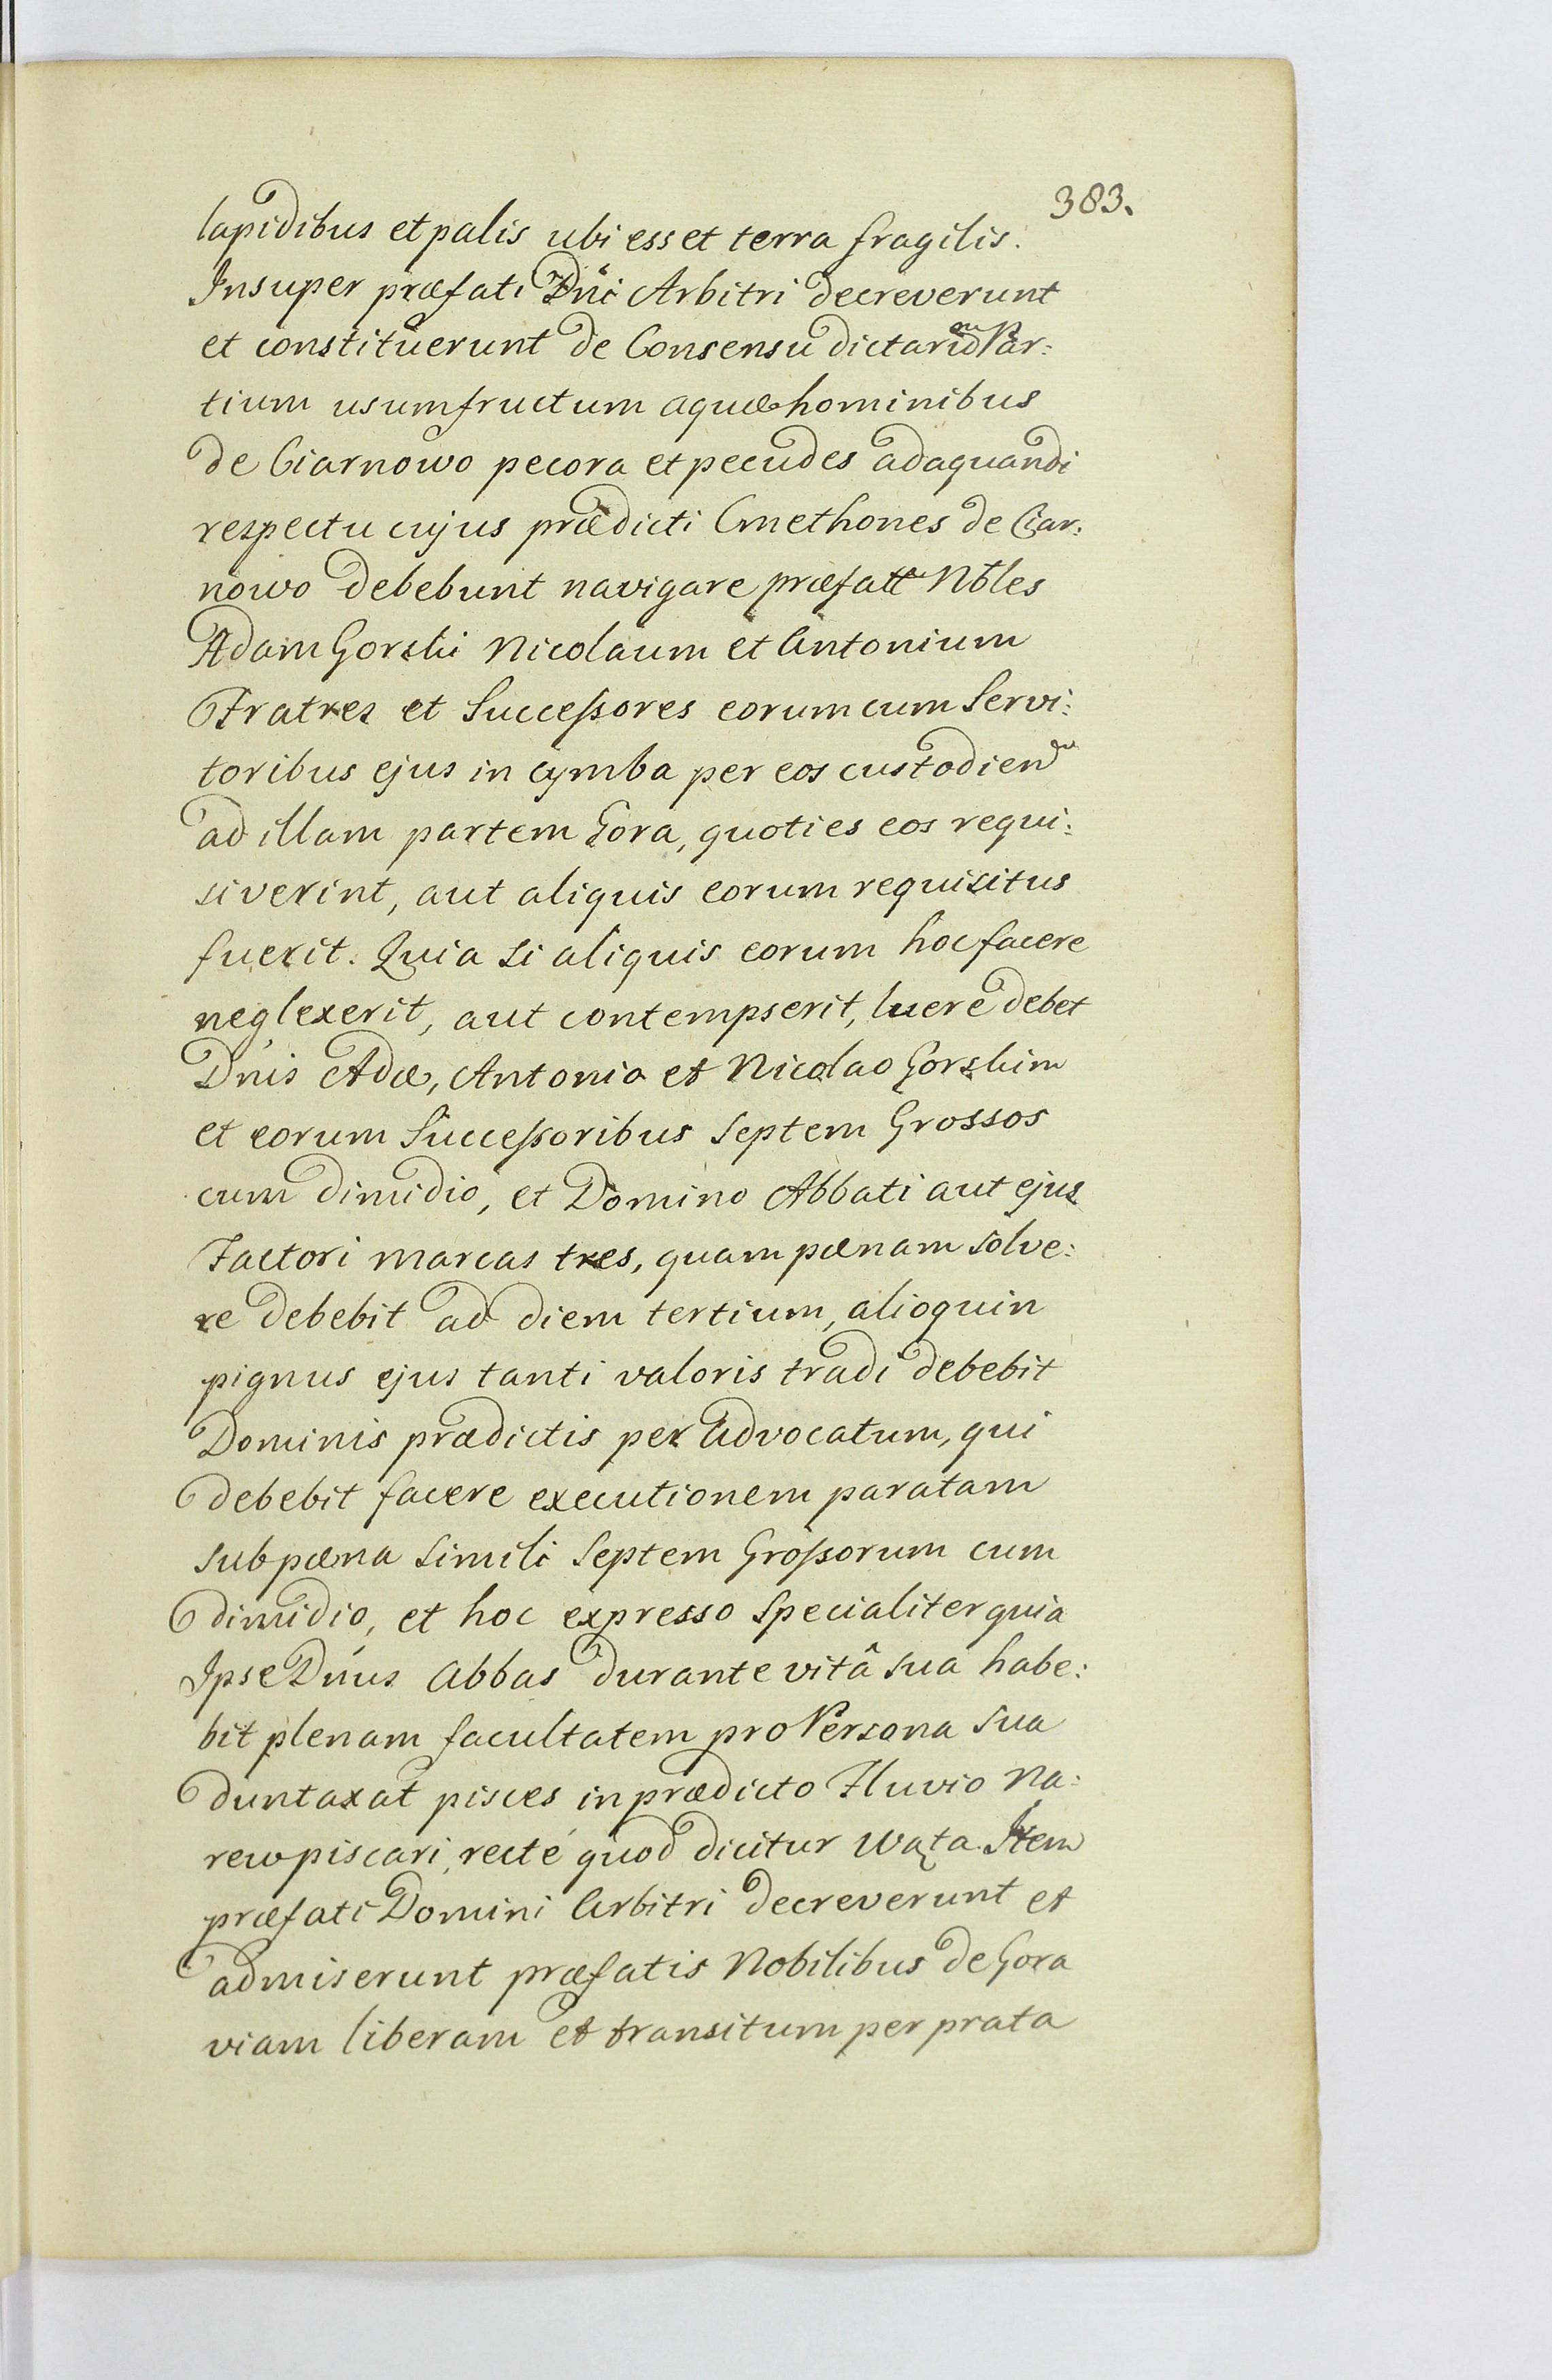 383.
lapidibus et palis ubi esset terra fragilis.
Insuper præfati Dni Arbitri decreverunt
et constituerunt de Consensu dictarum Par:
tium usumfructum aquæ hominibus
de Ciarnowo pecora et pecudes adaquandi
respectu cujus prædicti Cmethones de Ciar:
nowo debebunt navigare præfatt Nbles
Adam Gorski Nicolaum et Antonium
Fratres et Successores eorum cum Servi:
toribus ejus in cymba per eos custodien
ad illam partem Gora, quoties eos requi:
siverint, aut aliquis eorum requisitus
fuerit. Quia si aliquis eorum hoc facere
neglexerit, aut contempserit, luere debet
Dnis Adæ, Antonio et Nicolao Gorskim
et eorum Successoribus Septem Grossos
cum dimidio, et Domino Abbati aut ejus
Factori marcas tres, quam pænam solve:
re debebit ad diem tertium, alioquin
pignus ejus tanti valoris tradi debebit
Dominis prædictis per Advocatum, qui
debebit facere executionem paratam
sub pæna simili Septem Grossorum cum
dimidio, et hoc expresso Specialiter quia
Ipse Dnus Abbas durante vitâ sua habe:
bit plenam facultatem pro Persona sua
duntaxat pisces in prædicto Fluvio Na:
rew piscari, recté quod dicitur Wata. Item
præfati Domini Arbitri decreverunt et
admiserunt præfatis Nobilibus de Gora
viam liberam et transitum per prata